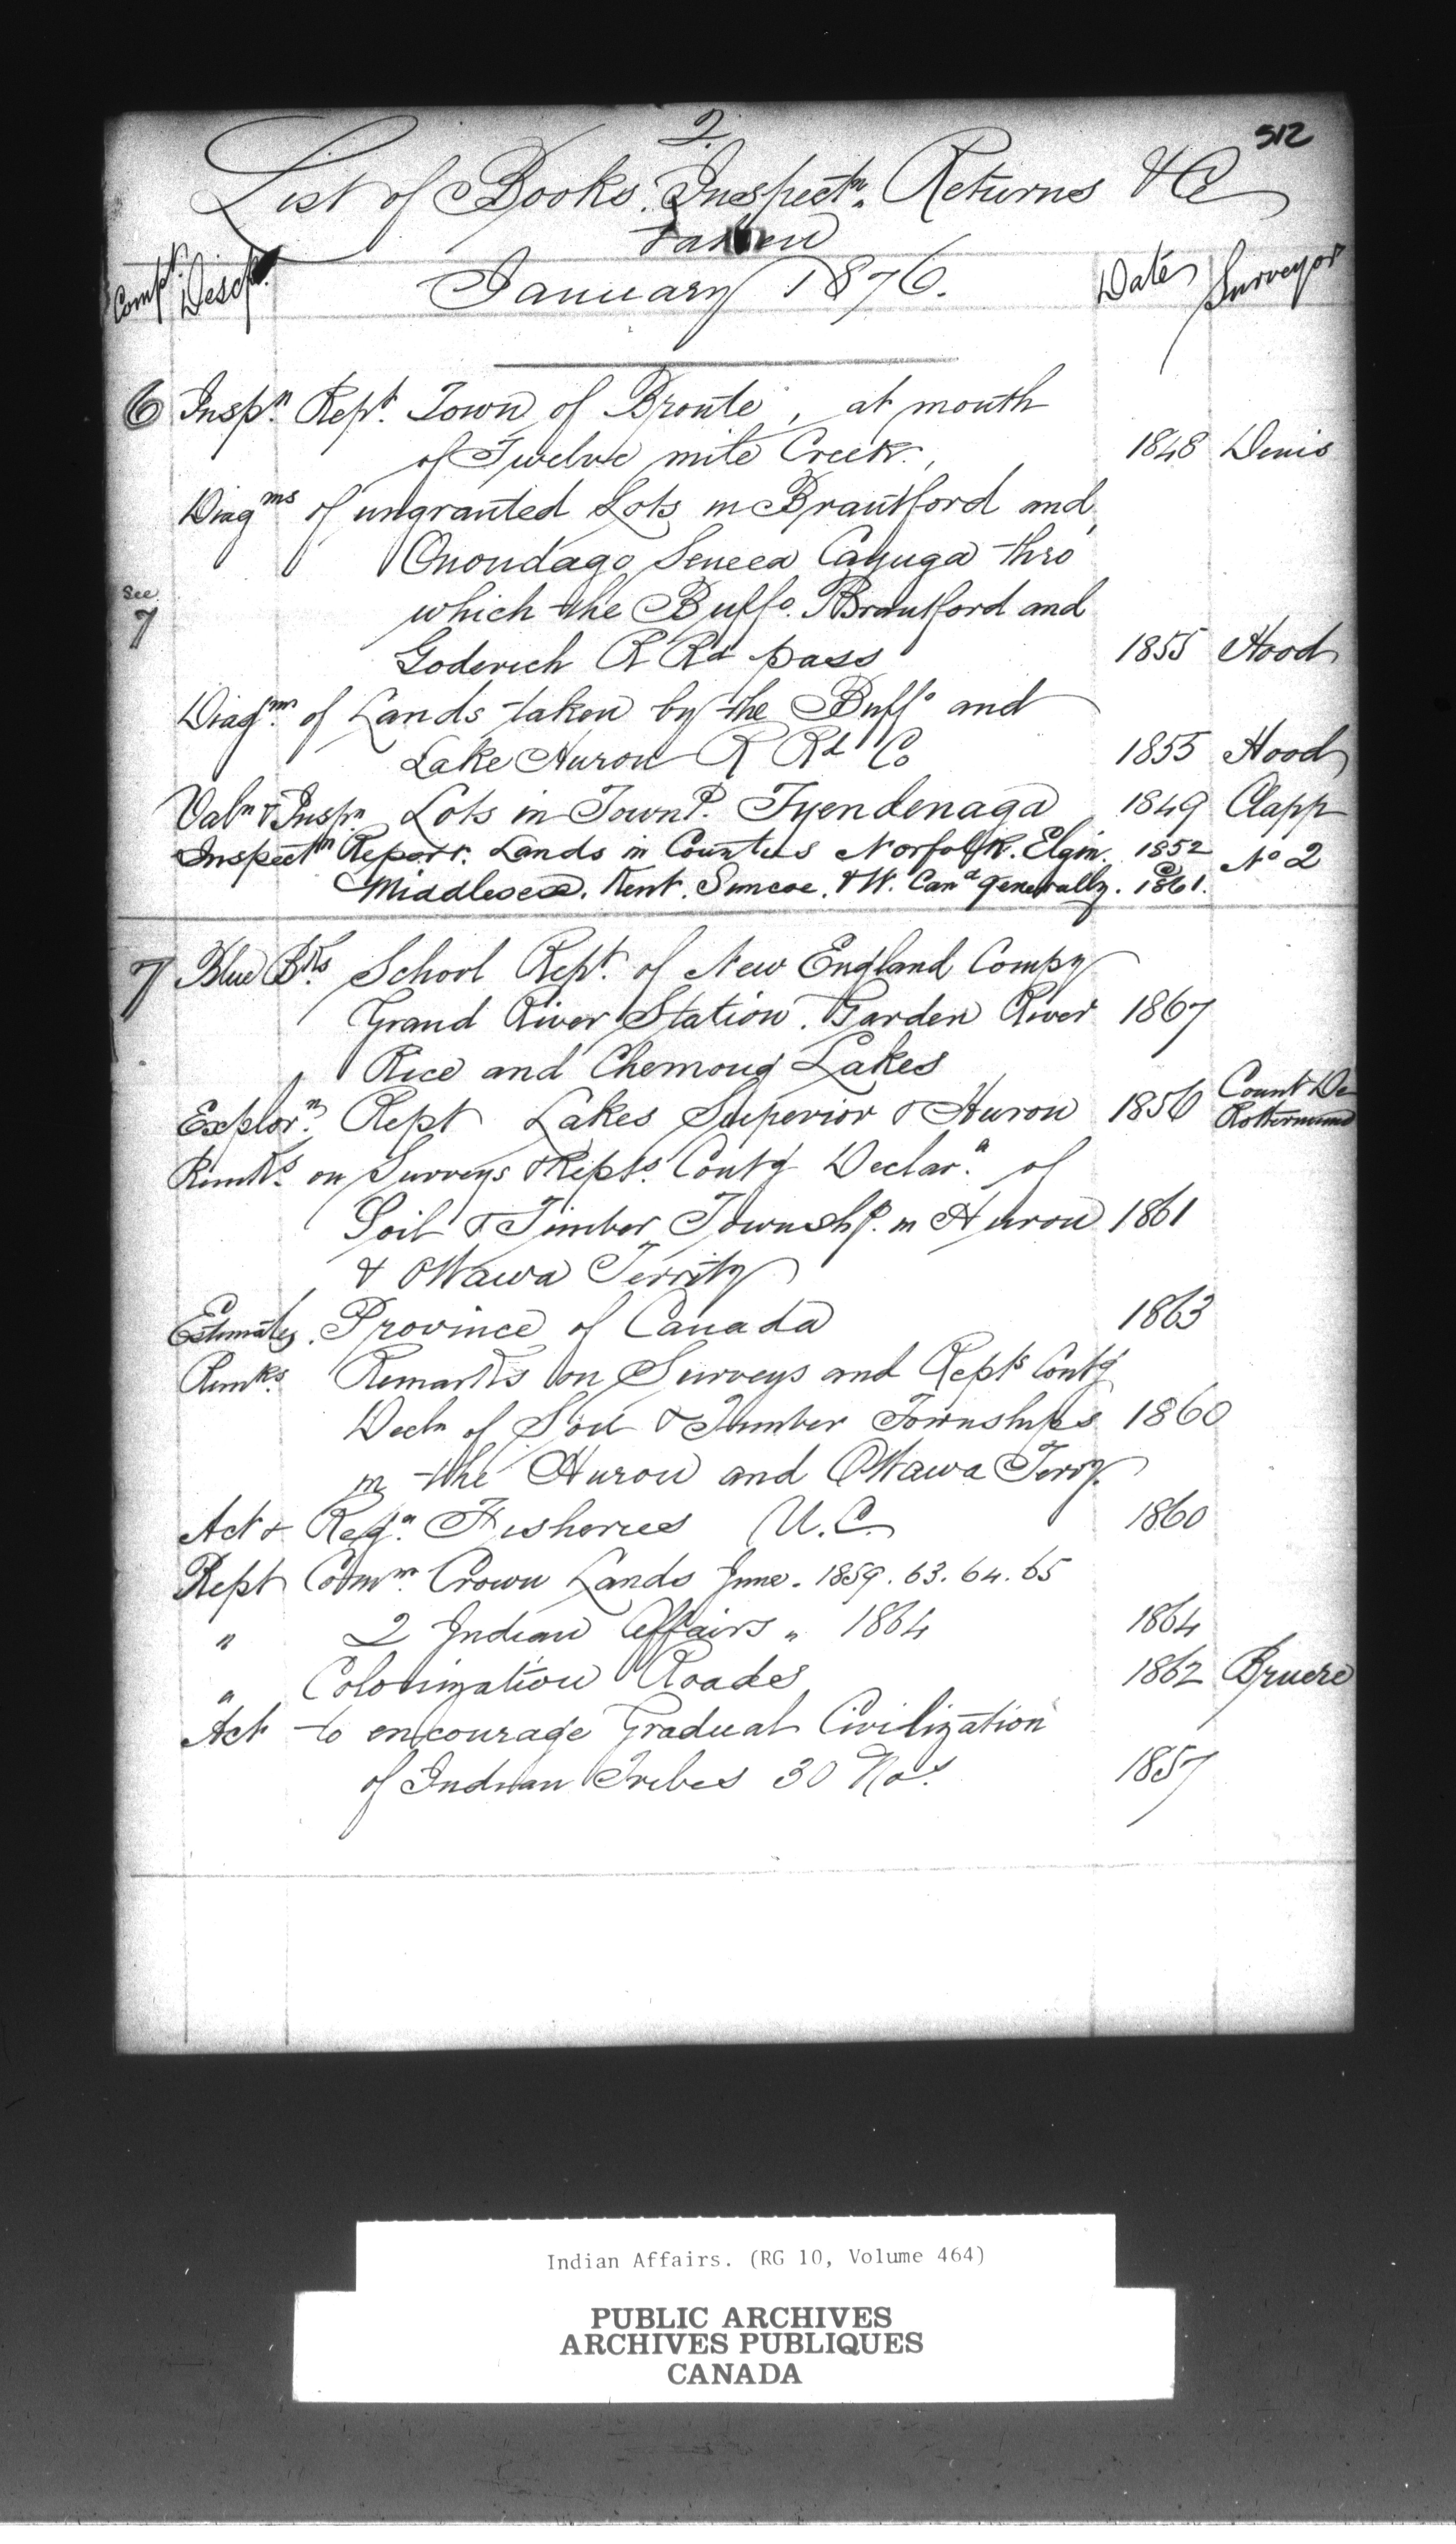 2.
512
List of Books. Inspectn. Returns &c
taken
Compt. Descp. January 1876. Dates Surveyor
6 Inspn. Rept. Town of Bronte, at mouth
of Twelve mile Creek. 1848 Denis
Diagms of ungranted Lots in Brantford and
Onondago Seneca Cayuga thro
See
7 which the Buffo. Brantford and
Goderich R Rd pass 1855 Hood
Diagm. of Lands taken by the Buffo and
Lake Huron R Rd Co 1855 Hood
Valn & Inspn Lots in TownP. Tyendenaga 1849 Clapp
Inspectn Report. Lands in Counties Norfolk. Elgin. 1852 No 2
Middlesex. Kent. Simcoe. & W. Cana generally. @ 1861.
7 Blue Bks. School Rept. of New England Compy
Grand River Station. Garden River 1867
Rice and Chemong Lakes
Explorn. Rept Lakes Superior & Huron 1856 Count De Rottermund
Remks. on Surveys & Repts. Contg Declarn. of
Soil & Timber Townshp. in Huron 1861
& Ottawa Territy
Estimates. Province of Canada 1863
Remks. Remarks on Surveys and Repts Contg
Decln of Soil & Timber Townships 1860
in the Huron and Ottawa Terry.
Act & Regn. Fisheries U.C. 1860
Rept Commr. Crown Lands June. 1859. 63. 64. 65
" 2 Indian Affairs " 1864 1864
" Colonization Roads 1862 Bruere
Act to encourage Gradual Civilization
of Indian Tribes 30 Nos. 1857
Indian Affairs. (RG 10, Volume 464)
PUBLIC ARCHIVES
ARCHIVES PUBLIQUES
CANADA